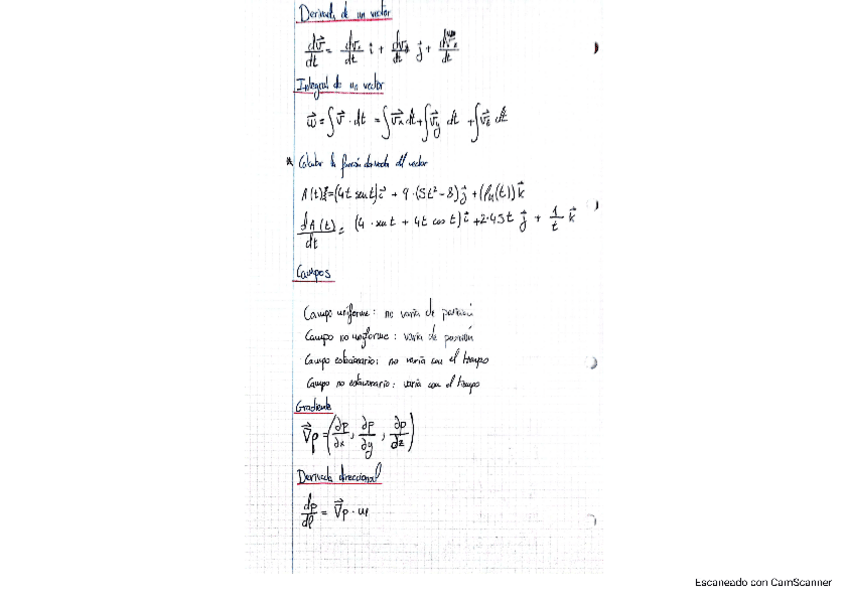 Derivada de un vector
dv⃗/dt = dvx/dt i + dvy/dt j + dvz/dt
Integral de un vector
w⃗ = ∫v⃗ · dt = ∫v⃗x dt + ∫v⃗y dt + ∫v⃗z dt
* Calcular la función derivada del vector
A(t) = (4t sen t) i⃗ + 9 · (5t² - 8) j⃗ + (ln(t)) k⃗
dA(t)/dt = (4 · sen t + 4t cos t) i⃗ + 2·45t j⃗ + 1/t k⃗
Campos
Campo uniforme: no varía de posición
Campo no uniforme: varía de posición
Campo estacionario: no varía con el tiempo
Campo no estacionario: varía con el tiempo
Gradiente
∇⃗p = (∂p/∂x, ∂p/∂y, ∂p/∂z)
Derivada direccional
dp/dl = ∇⃗p · ul
Escaneado con CamScanner